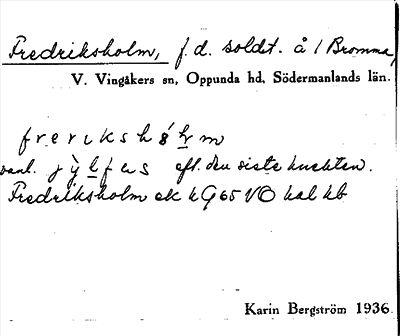 Fredriksholm, f.d. soldt. å / Bromma,
V. Vingåkers sn, Oppunda hd, Södermanlands län.
frerıks
vanl. eft. den siste knekten.
Fredriksholm ek kG65 VO kal kb
Karin Bergström 1936.